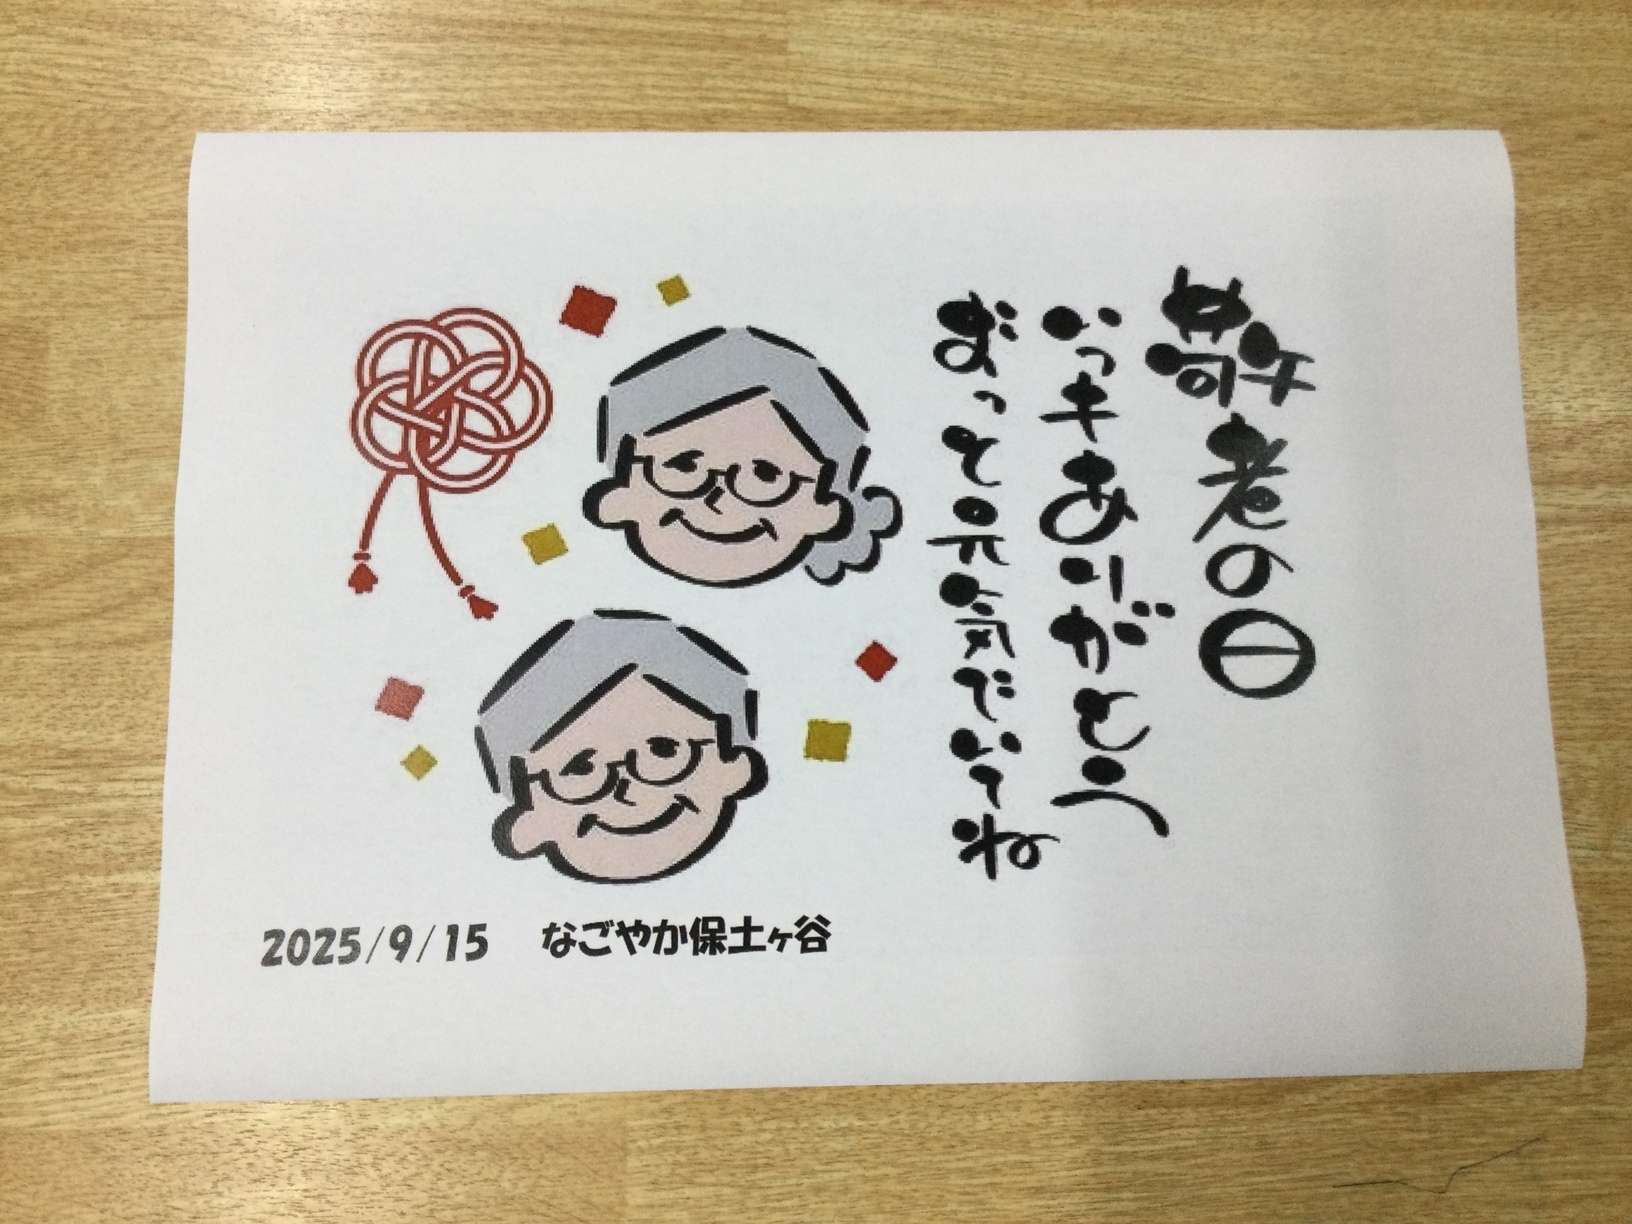 敬老の日
いつもありがとう
ずっと元気でいてね
2025/9/15 なごやか保土ヶ谷